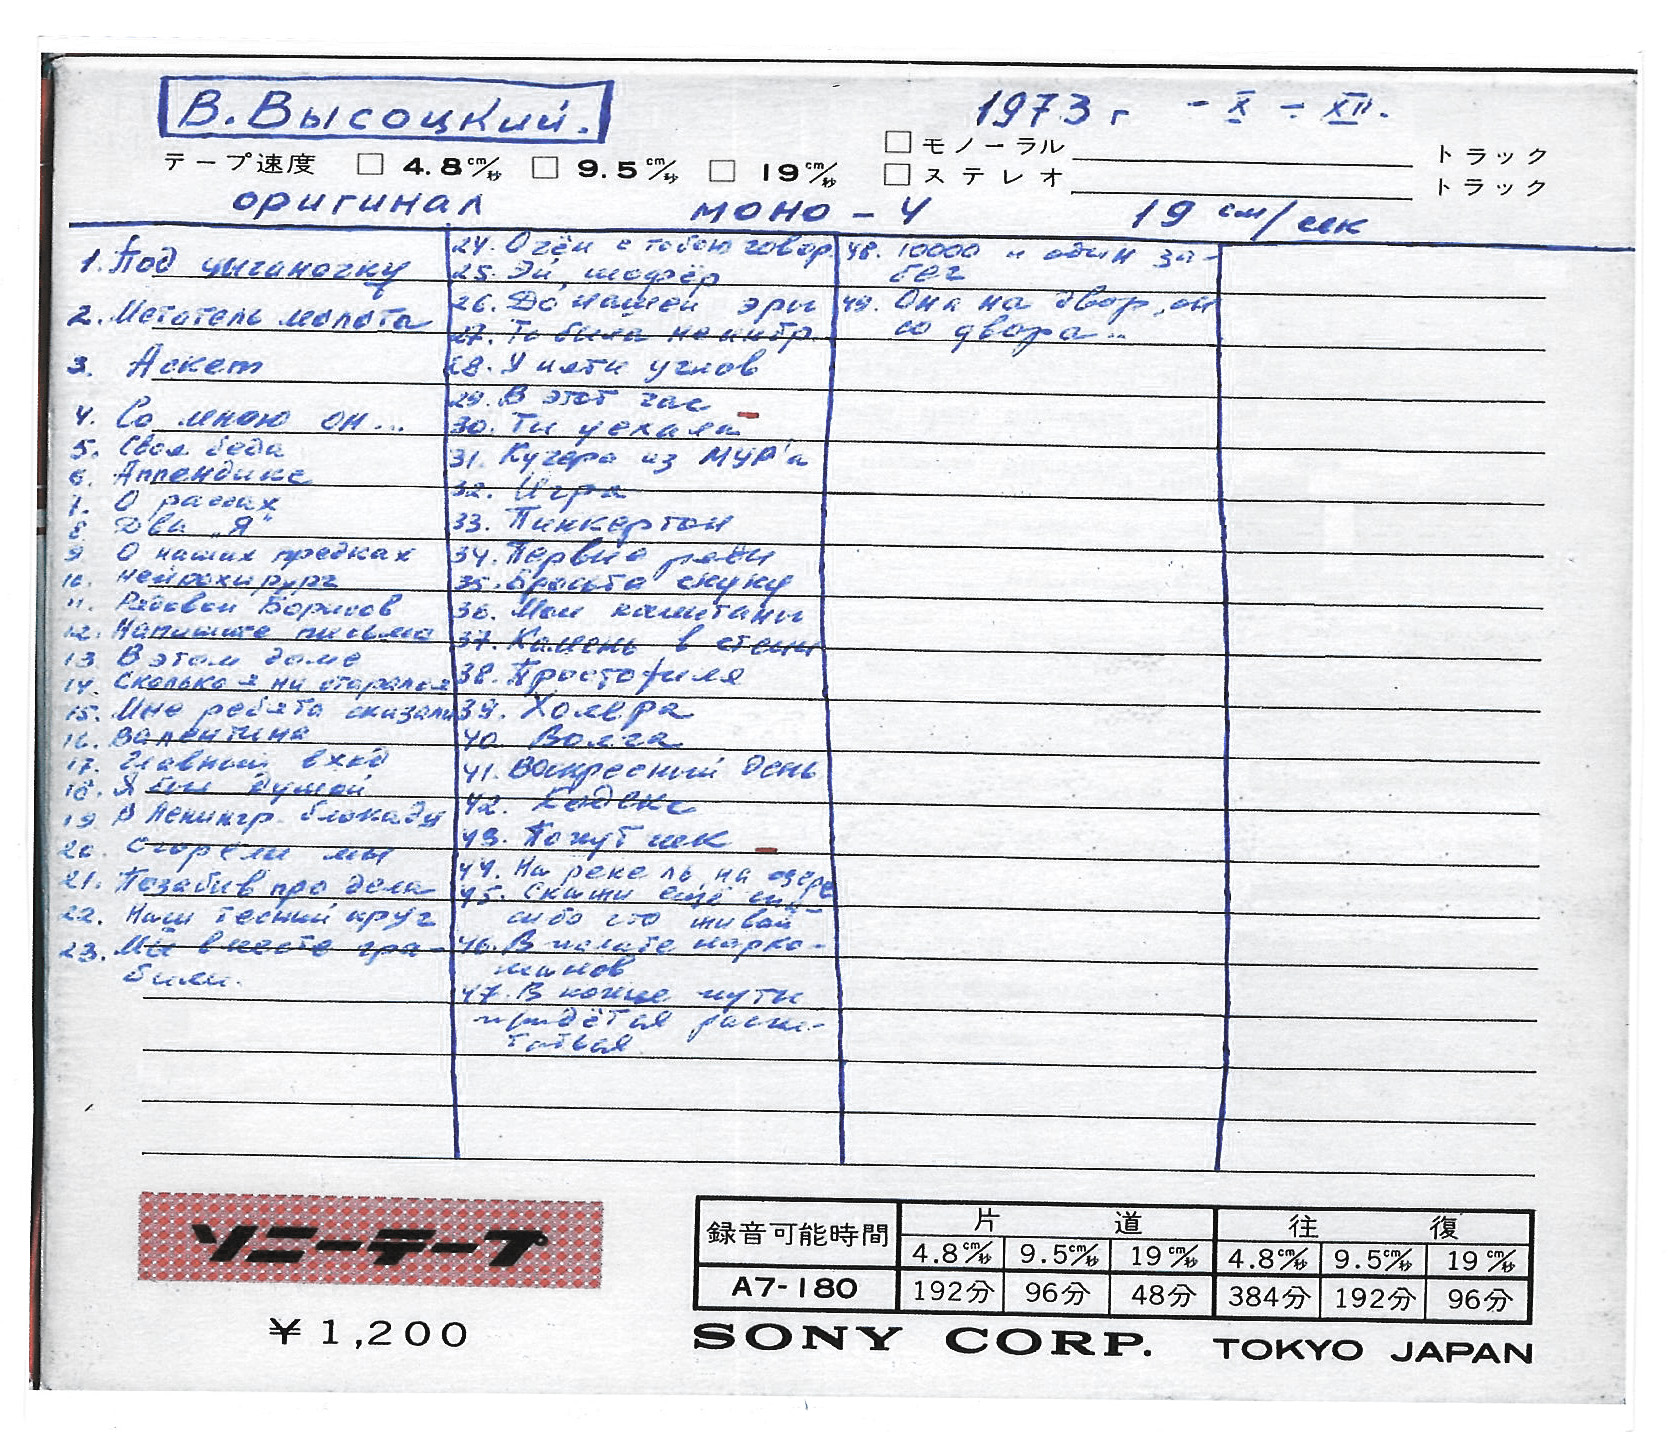 В. Высоцкий.
1973 г - X ÷ XII.
テープ速度 □ 4.8cm/秒 □ 9.5cm/秒 □ 19cm/秒
□ モノーラル トラック
□ ステレオ トラック
оригинал моно - 4 19 см/сек
1. Под цыганочку
2. Метатель молота
3. Аскет
4. Со мною он...
5. Своя беда
6. Аппендикс
7. О рассах
8 Два „Я"
9 О наших предках
10. Нейрохирург
11. Рядовой Борисов
12. Напишите письмо
13 В этом доме
14. Сколько я ни старался
15. Мне ребята сказали
16. Валентина
17. Главный вход
18. Я был душой
19. В Ленингр. блокаду
20. Сгорели мы
21. Позабыв про дела
22. Наш тесный круг
23. Мы вместе гра-
били.
24. О чём с тобою говор.
25. Эй, шофёр
26. До нашей эры
27. То была не интр.
28. У пяти углов
29. В этот час
30. Ты уехала
31. Кучера из МУР'а
32. Игра
33. Пинкертон
34. Первые ряды
35. Бросьте скуку
36. Мои капитаны
37. Камень в стену
38. Простофиля
39. Холера
40. Волга
41. Воскресный день
42. Кодекс
43. Попутчик
44. На реке ль на озере
45. Скажи ещё спа-
сибо что живой
46. В палате нарко-
манов
47. В конце пути
придётся распла-
таться
48. 10000 и один за-
бег
49. Она на двор, он
со двора...
ソニーテープ
¥1,200
録音可能時間 片道 往復
4.8cm/秒 9.5cm/秒 19cm/秒 4.8cm/秒 9.5cm/秒 19cm/秒
A7-180 192分 96分 48分 384分 192分 96分
SONY CORP. TOKYO JAPAN